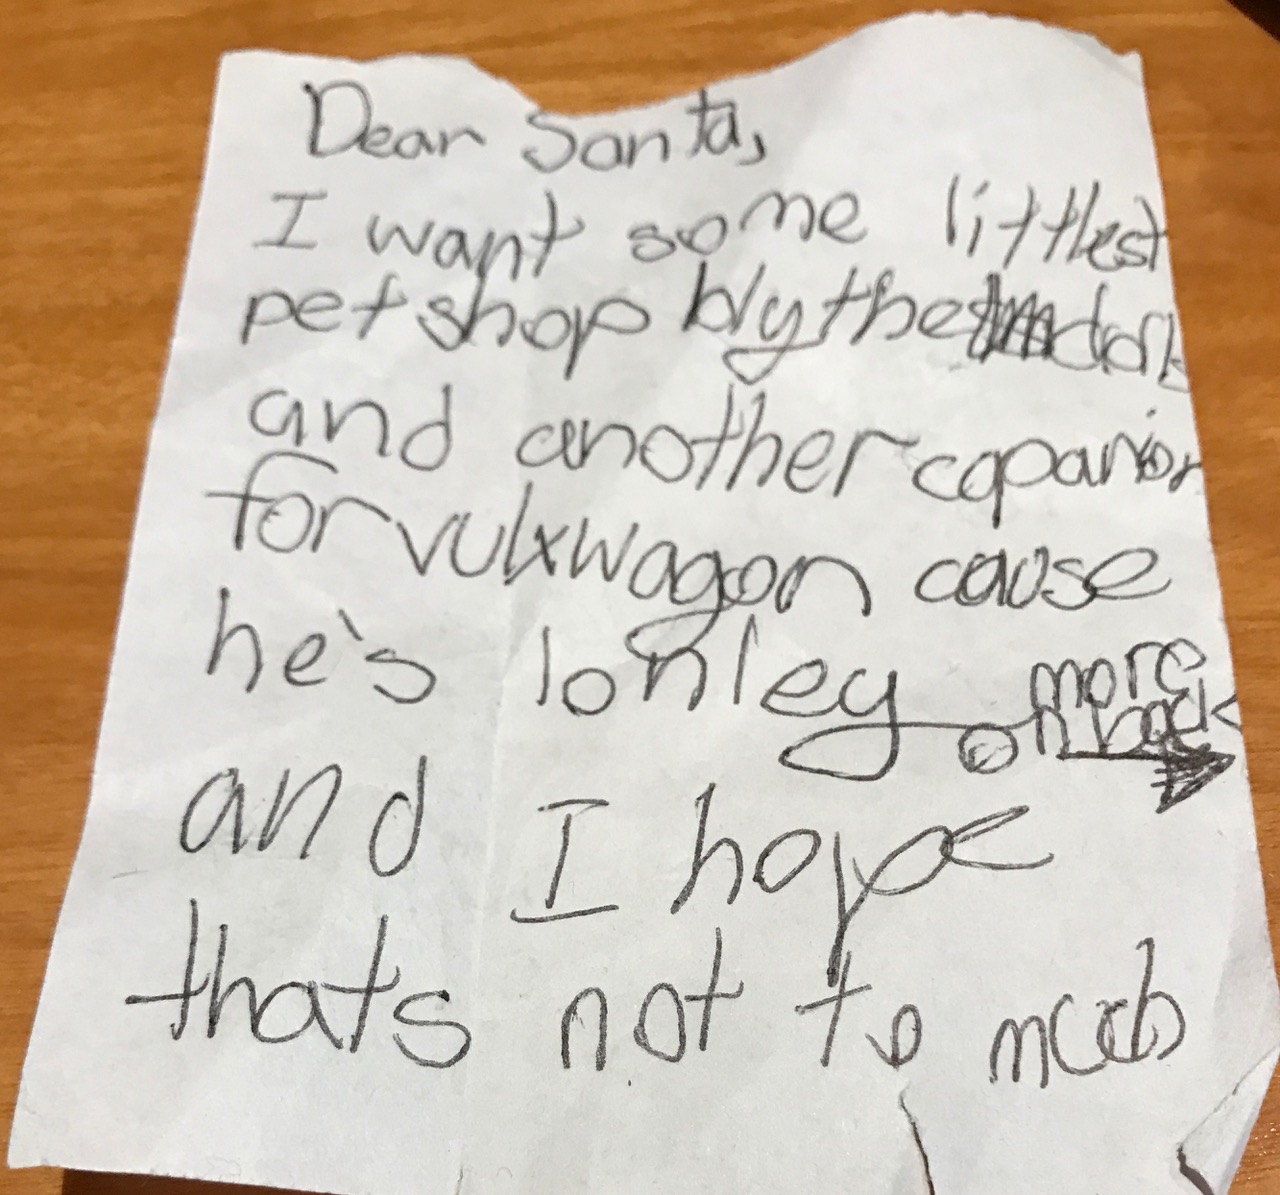 Dear Santa,
I want some littlest
petshop blythe
and another copanion
for vulxwagon cause
he's lonley
more
on back
and I hope
thats not to